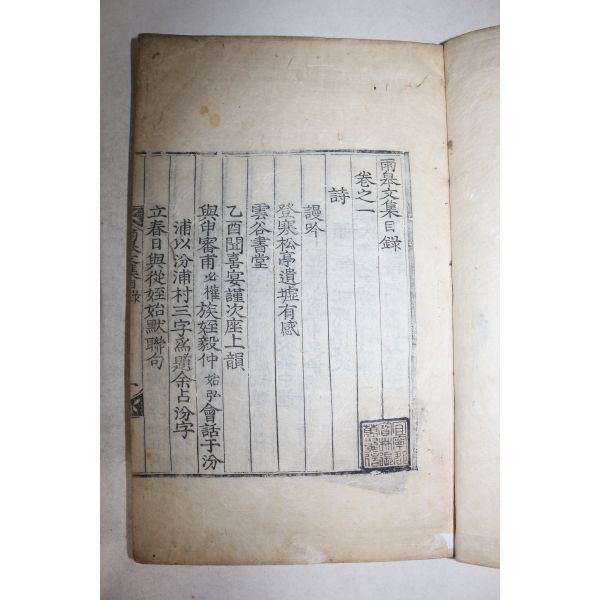 雨皐文集目錄
卷之一
詩
謾吟
登寒松亭遺墟有感
雲谷書堂
乙酉聞喜宴謹次座上韻
與申審甫必權族姪毅仲始弘會話于汾
浦以汾浦村三字爲題余占汾字
立春日與從姪始默聯句